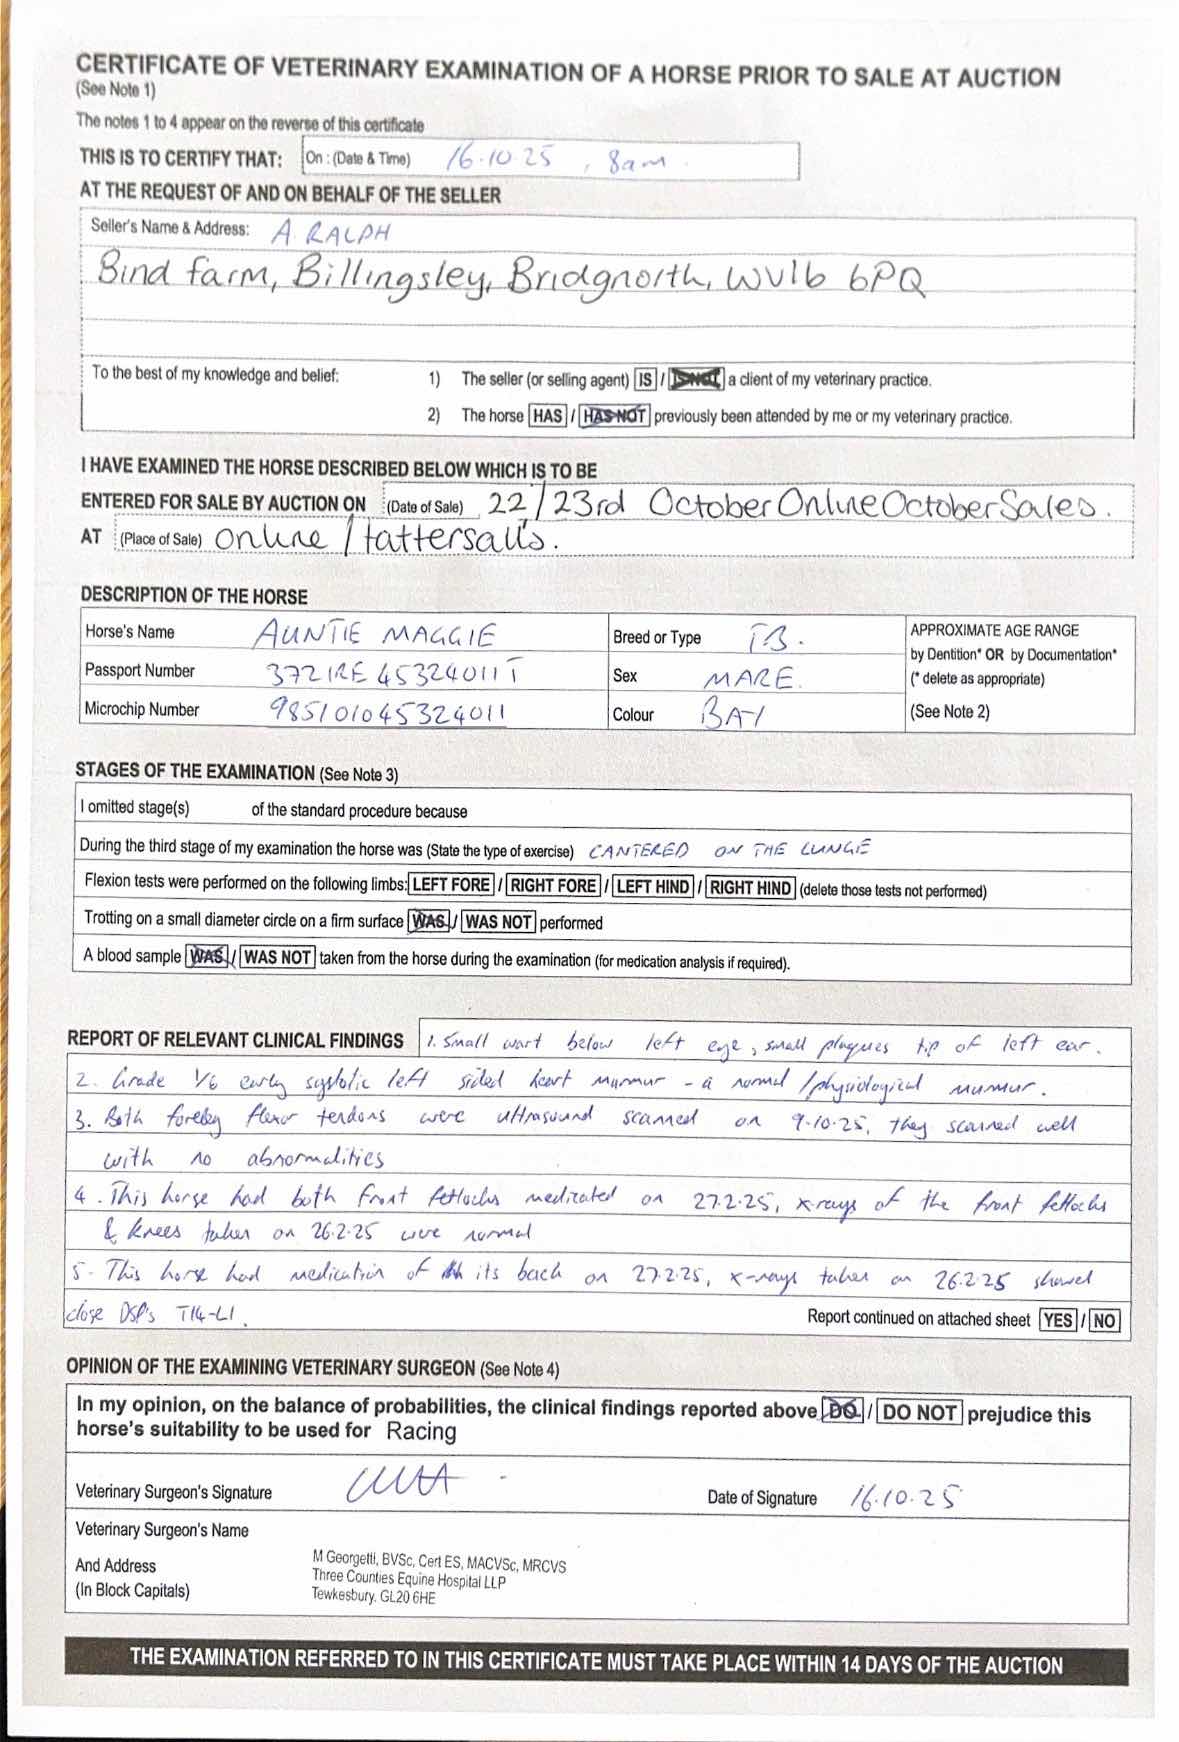 CERTIFICATE OF VETERINARY EXAMINATION OF A HORSE PRIOR TO SALE AT AUCTION
(See Note 1)
The notes 1 to 4 appear on the reverse of this certificate
THIS IS TO CERTIFY THAT: On : (Date & Time) 16.10.25, 8am.
AT THE REQUEST OF AND ON BEHALF OF THE SELLER
Seller's Name & Address: A. RALPH
Bind farm, Billingsley, Bridgnorth, WV16 6PQ
To the best of my knowledge and belief: 1) The seller (or selling agent) IS / IS NOT a client of my veterinary practice.
2) The horse HAS / HAS NOT previously been attended by me or my veterinary practice.
I HAVE EXAMINED THE HORSE DESCRIBED BELOW WHICH IS TO BE
ENTERED FOR SALE BY AUCTION ON (Date of Sale) 22/23rd October Online October Sales.
AT (Place of Sale) Online / tattersalls.
DESCRIPTION OF THE HORSE
Horse's Name AUNTIE MAGGIE Breed or Type T.B. APPROXIMATE AGE RANGE
by Dentition* OR by Documentation*
Passport Number 372IRE45324011T Sex MARE. (* delete as appropriate)
Microchip Number 985101045324011 Colour BAY (See Note 2)
STAGES OF THE EXAMINATION (See Note 3)
I omitted stage(s) of the standard procedure because
During the third stage of my examination the horse was (State the type of exercise) CANTERED ON THE LUNGE
Flexion tests were performed on the following limbs: LEFT FORE / RIGHT FORE / LEFT HIND / RIGHT HIND (delete those tests not performed)
Trotting on a small diameter circle on a firm surface WAS / WAS NOT performed
A blood sample WAS / WAS NOT taken from the horse during the examination (for medication analysis if required).
REPORT OF RELEVANT CLINICAL FINDINGS 1. Small wart below left eye, small plaques tip of left ear.
2. Grade 1/6 early systolic left sided heart murmur - a normal / physiological murmur.
3. Both foreleg flexor tendons were ultrasound scanned on 9.10.25, they scanned well
with no abnormalities
4. This horse had both front fetlocks medicated on 27.2.25, x-rays of the front fetlocks
& knees taken on 26.2.25 were normal
5. This horse had medication of its back on 27.2.25, x-rays taken on 26.2.25 showed
close DSP's T14-L1. Report continued on attached sheet YES / NO
OPINION OF THE EXAMINING VETERINARY SURGEON (See Note 4)
In my opinion, on the balance of probabilities, the clinical findings reported above DO / DO NOT prejudice this
horse's suitability to be used for Racing
Veterinary Surgeon's Signature Date of Signature 16.10.25
Veterinary Surgeon's Name
And Address
(In Block Capitals)
M Georgetti, BVSc, Cert ES, MACVSc, MRCVS
Three Counties Equine Hospital LLP
Tewkesbury. GL20 6HE
THE EXAMINATION REFERRED TO IN THIS CERTIFICATE MUST TAKE PLACE WITHIN 14 DAYS OF THE AUCTION